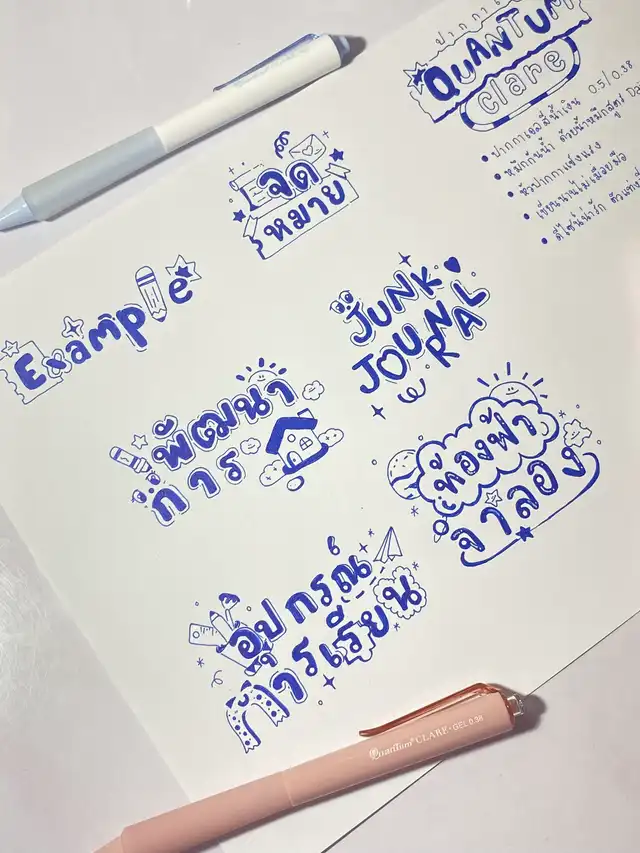 ปากกา
QUANTUM
clare
• ปากกาเจลสีน้ำเงิน 0.5/0.38
• หมึกกันน้ำ ด้วยน้ำหมึกสูตร
• หัวปากกาแข็งแรง
• เขียนนานไม่เมื่อยมือ
• ดีไซน์น่ารัก
จด
หมาย
Example
JUNK
JOURNAL
พัฒนา
การ
ท้องฟ้า
จำลอง
อุปกรณ์
การเรียน
Quantum CLARE • GEL 0.38